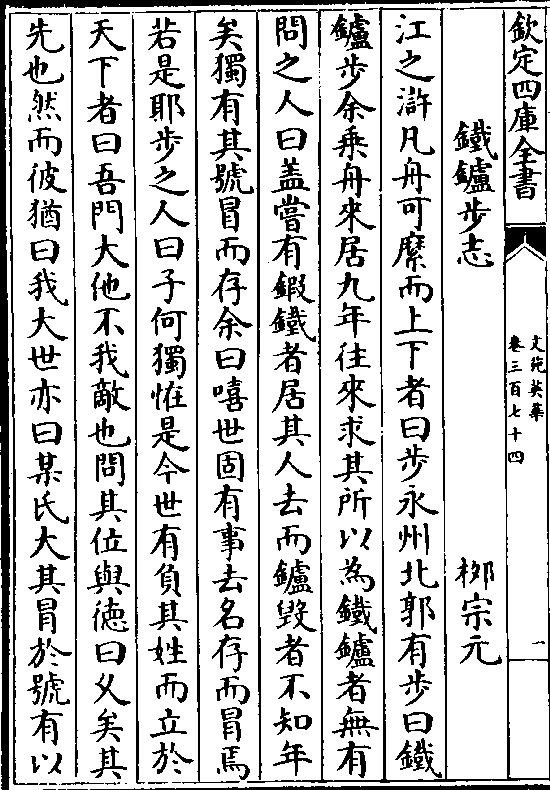 欽定四庫全書
文苑英華
卷三百七十四
一
鐵鑪步志
柳宗元
江之滸凡舟可縻而上下者曰步永州北郭有步曰鐵
鑪步余乗舟來居九年往來求其所以為鐵鑪者無有
問之人曰盖嘗有鍛鐵者居其人去而鑪毁者不知年
矣獨有其號冒而存余曰嘻世固有事去名存而冒焉
若是耶步之人曰子何獨恠是今世有負其姓而立於
天下者曰吾門大他不我敵也問其位與徳曰乆矣其
先也然而彼猶曰我大世亦曰某氏大其冒於號有以